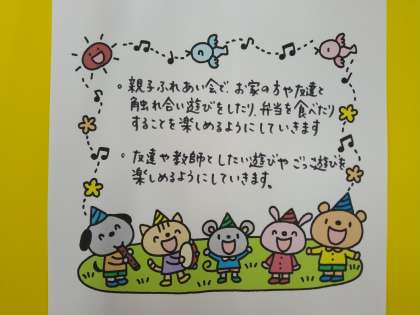 。親子ふれあい会で、お家の方や友達と
触れ合い遊びをしたり、弁当を食べたり
することを楽しめるようにしていきます
。友達や教師としたい遊びや ごっこ遊びを
楽しめるようにしていきます。